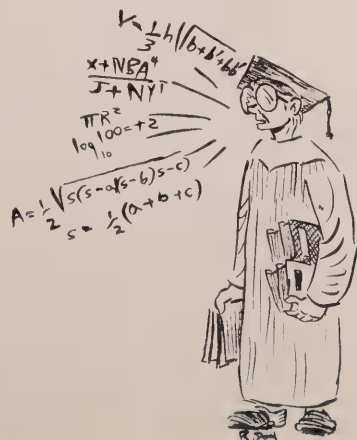 V = 1/3 h √(b+b'+bb'
x+NBA⁴
J+NYT
πR²
log₁₀ 100=+2
A=1/2 √s(s-a)(s-b)s-c)
s = 1/2 (a+b+c)